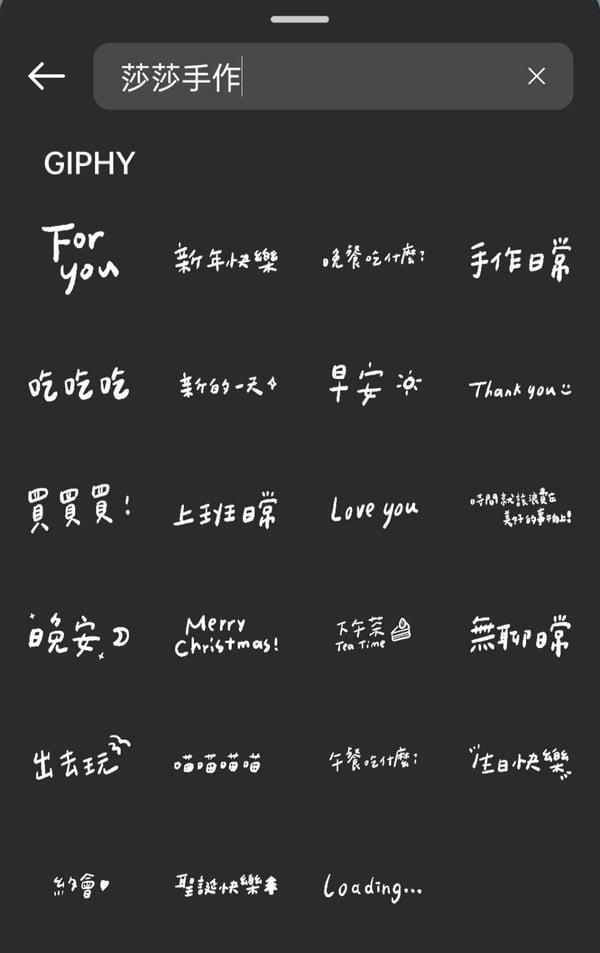 莎莎手作
GIPHY
For
you
新年快樂
晚餐吃什麼?
手作日常
吃吃吃
新的一天
早安
Thank you
買買買!
上班日常
Love you
時間就該浪費在
美好的事物上!
晚安
Merry
Christmas!
下午茶
Tea Time
無聊日常
出去玩
喵喵喵喵
午餐吃什麼?
生日快樂
約會
聖誕快樂
Loading...